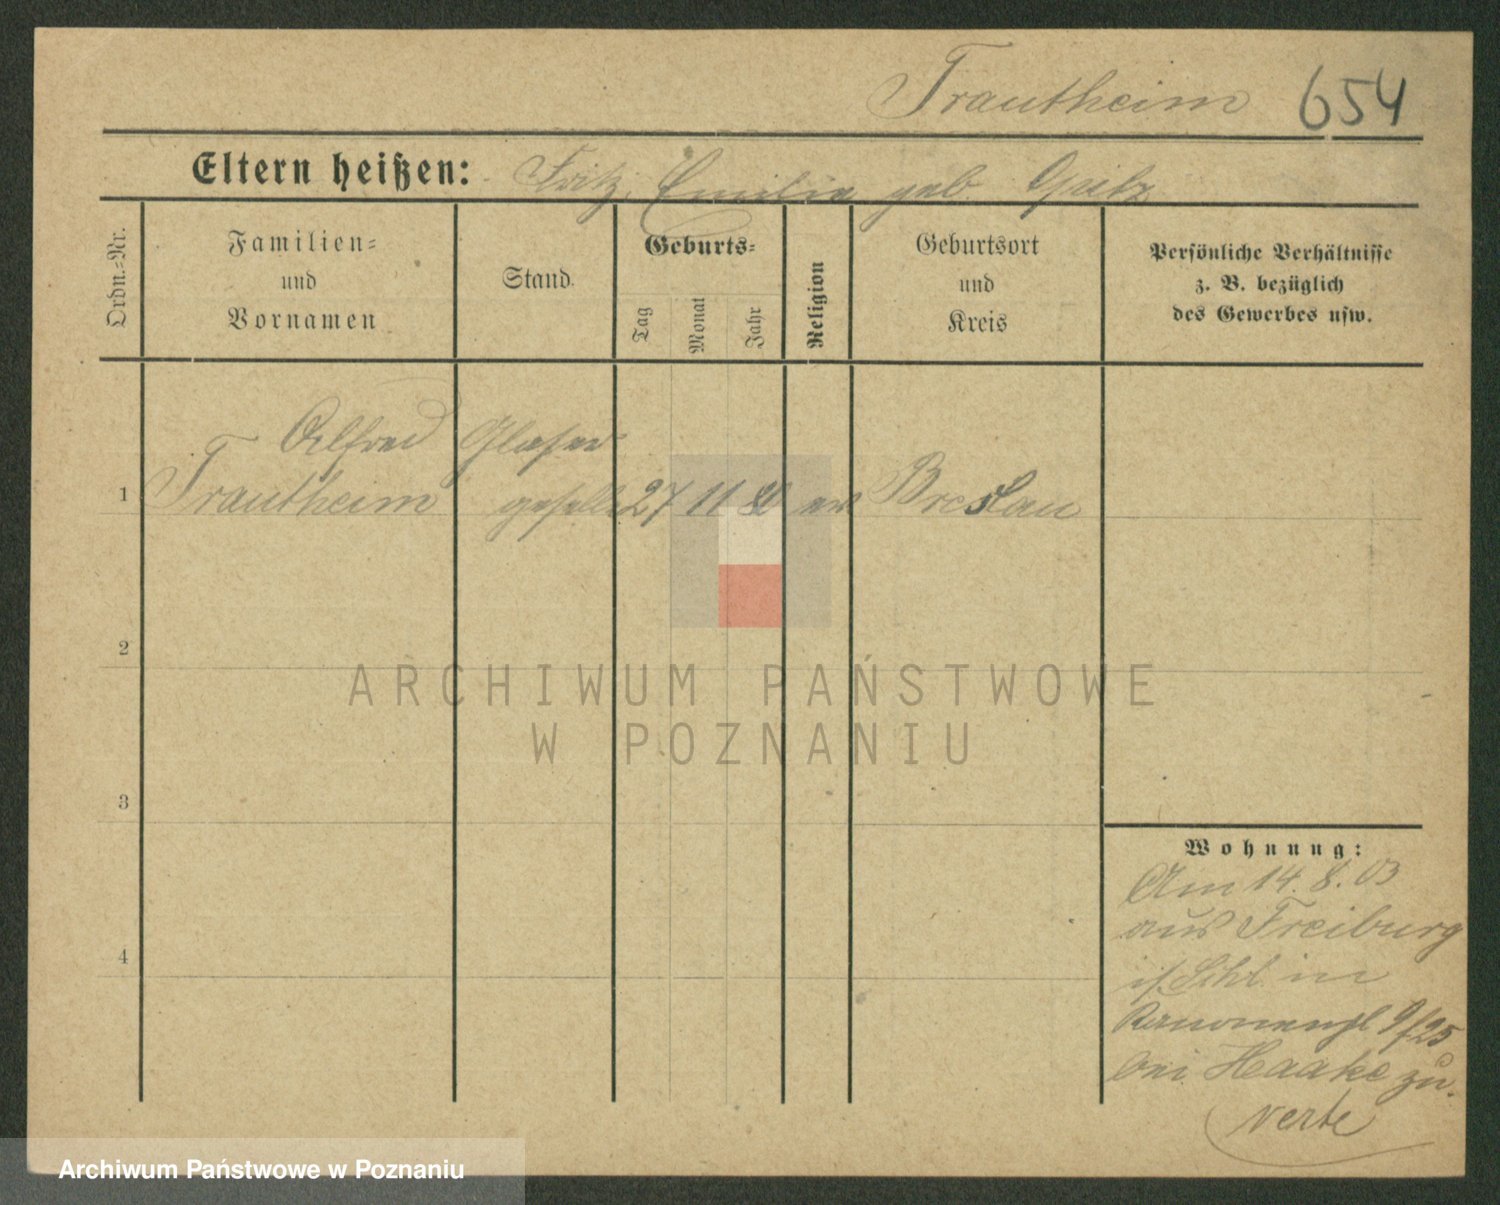 Trautheim 654
Eltern heißen: Fritz, Emilie geb.
Ordn.-Nr.
Familien-
und
Vornamen
Stand.
Geburts-
Tag
Monat
Jahr
Religion
Geburtsort
und
Kreis
Persönliche Verhältnisse
z. B. bezüglich
des Gewerbes usw.
Alfred Glaser
1 Trautheim geselle 27 11 ev Breslau
2
3
4
ARCHIWUM PAŃSTWOWE
W POZNANIU
Wohnung:
Am 14. 8. 03
aus Freiburg
in
Kanonenpl 9/25
bei Haake zu.
verte
Archiwum Państwowe w Poznaniu